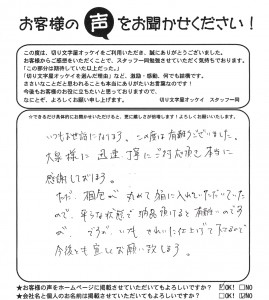 お客様の声をお聞かせください！
この度は、切り文字屋オッケイをご利用いただき、誠にありがとうございました。
お客様からご感想をいただくことで、スタッフ一同勉強させていただく気持ちでおります。
「この部分は期待していた以上だった。」
「切り文字屋オッケイを選んだ理由」など、激励・感動、何でも結構です。
ささいなことだと思われることも本当にありがたいお言葉なのです！
今後もお客様のお役に立ちたいと思っておりますので、
なにとぞ、よろしくお願い申し上げます。 切り文字屋オッケイ スタッフ一同
☆できるだけ具体的にお聞かせいただけると、更に嬉しさが倍増します！よろしくお願いします。
いつもお世話になります。この度は有難うございました。
大変様に迅速、丁寧にご対応頂き本当に
感謝しております。
ただ、梱包が丸めて箱に入れていただいていた
ので、平らな状態で 頂けると有難いのです
が。どうか、いつもきれいに仕上げて下さるので
今後とも宜しくお願い致します。
★お客様の声をホームページに掲載させていただいてもよろしいですか？ ☑OK! □NO!
★会社名と個人のお名前は掲載させていただいてもよろしいですか？ □OK! ☑NO!